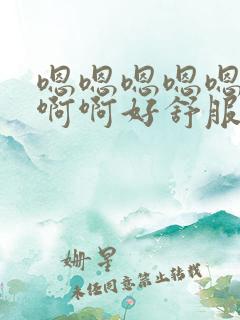 嗯嗯嗯嗯嗯
啊啊好舒服
姗星
未经同意禁止转载